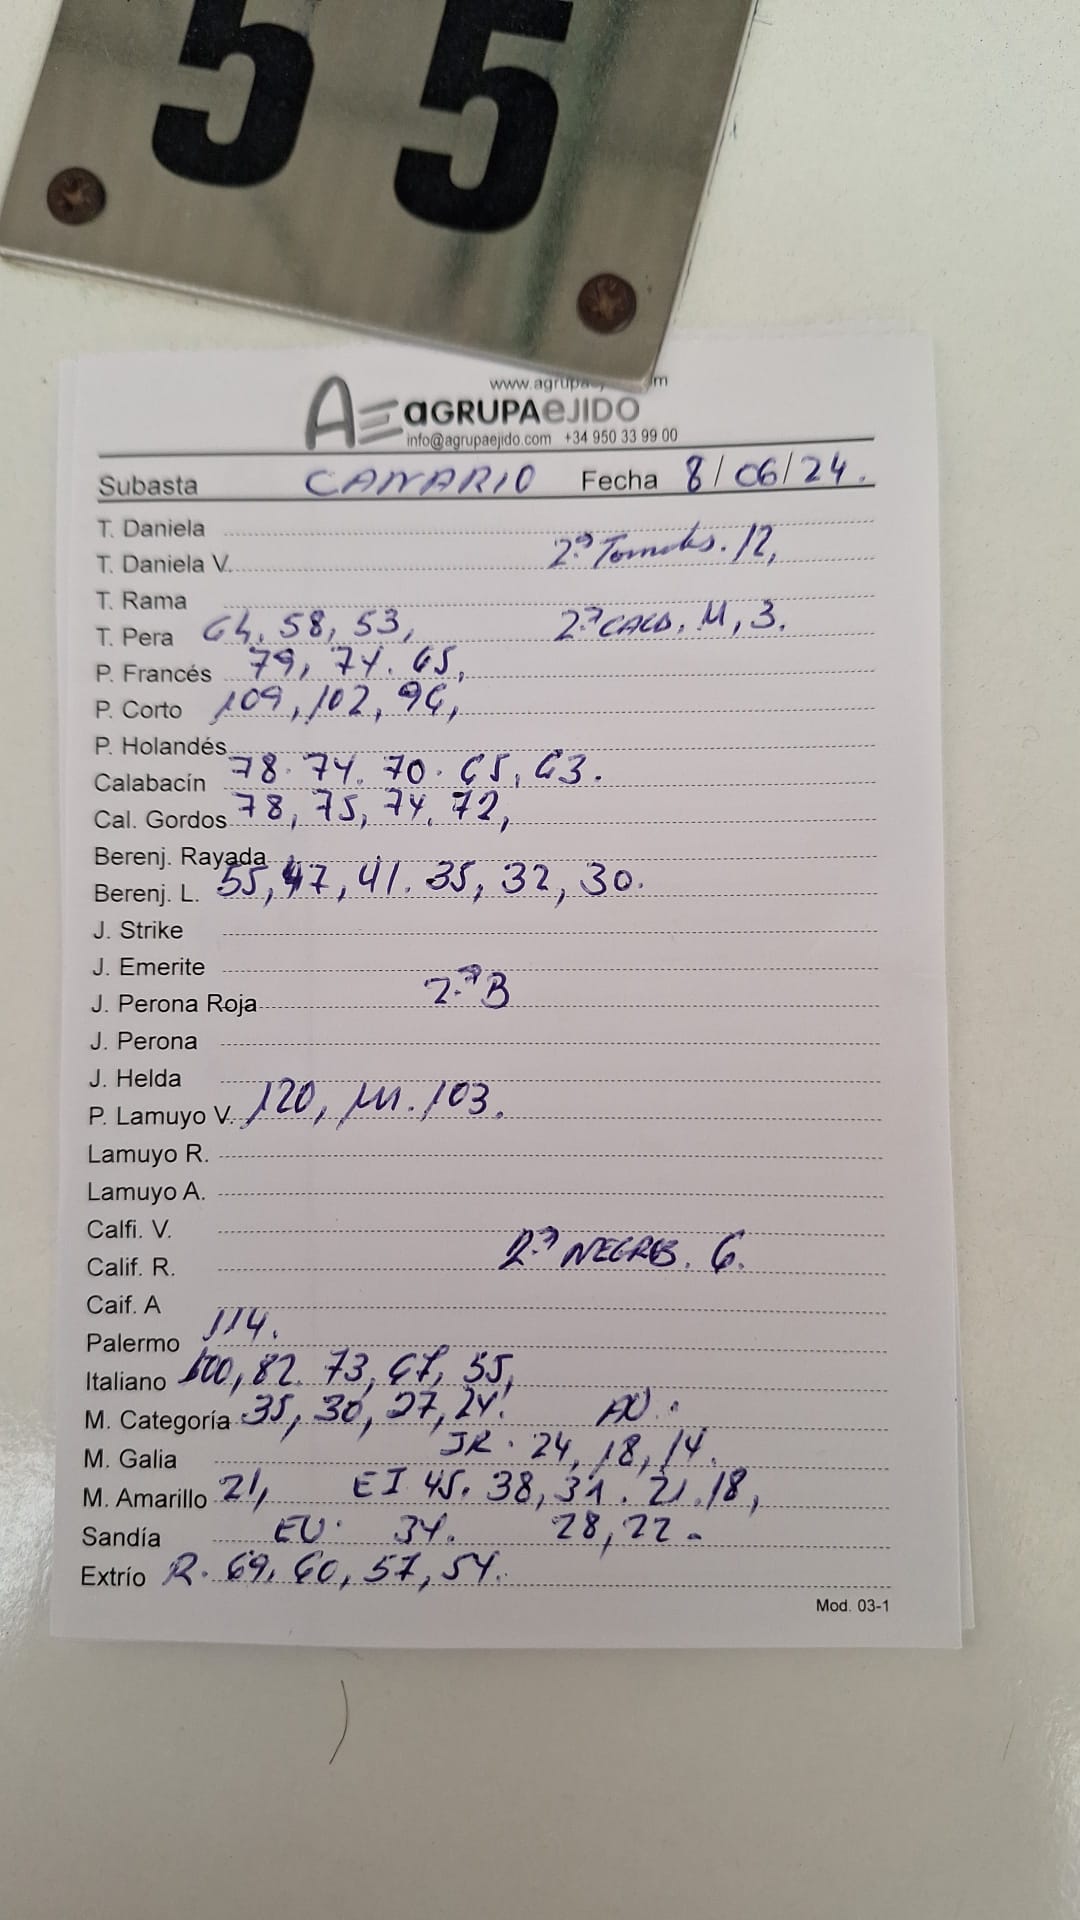 55
www.agrupa m
AGRUPAEJIDO
info@agrupaejido.com +34 950 33 99 00
Subasta CANARIO Fecha 8/06/24.
T. Daniela
T. Daniela V. 2ª Tomates. 12,
T. Rama
T. Pera 64, 58, 53, 2ª CALD. 11, 3.
P. Francés 79, 74. 65,
P. Corto 109, 102, 96,
P. Holandés
Calabacín 78. 74. 70. 65, 63.
Cal. Gordos 78, 75, 74, 72,
Berenj. Rayada
Berenj. L. 55, 47, 41. 35, 32, 30.
J. Strike
J. Emerite
J. Perona Roja 2.ª B
J. Perona
J. Helda
P. Lamuyo V. 120, 111. 103.
Lamuyo R.
Lamuyo A.
Calfi. V.
Calif. R. 2ª NEGRAS. 6.
Caif. A
Palermo 114.
Italiano 100, 82. 73, 67, 55,
M. Categoría 35, 30, 27, 24.
M. Galia JR. 24, 18, 14.
M. Amarillo 21, EI 45. 38, 31. 21. 18,
Sandía EU. 34. 28, 22-
Extrío R. 69, 60, 57, 54.
Mod. 03-1